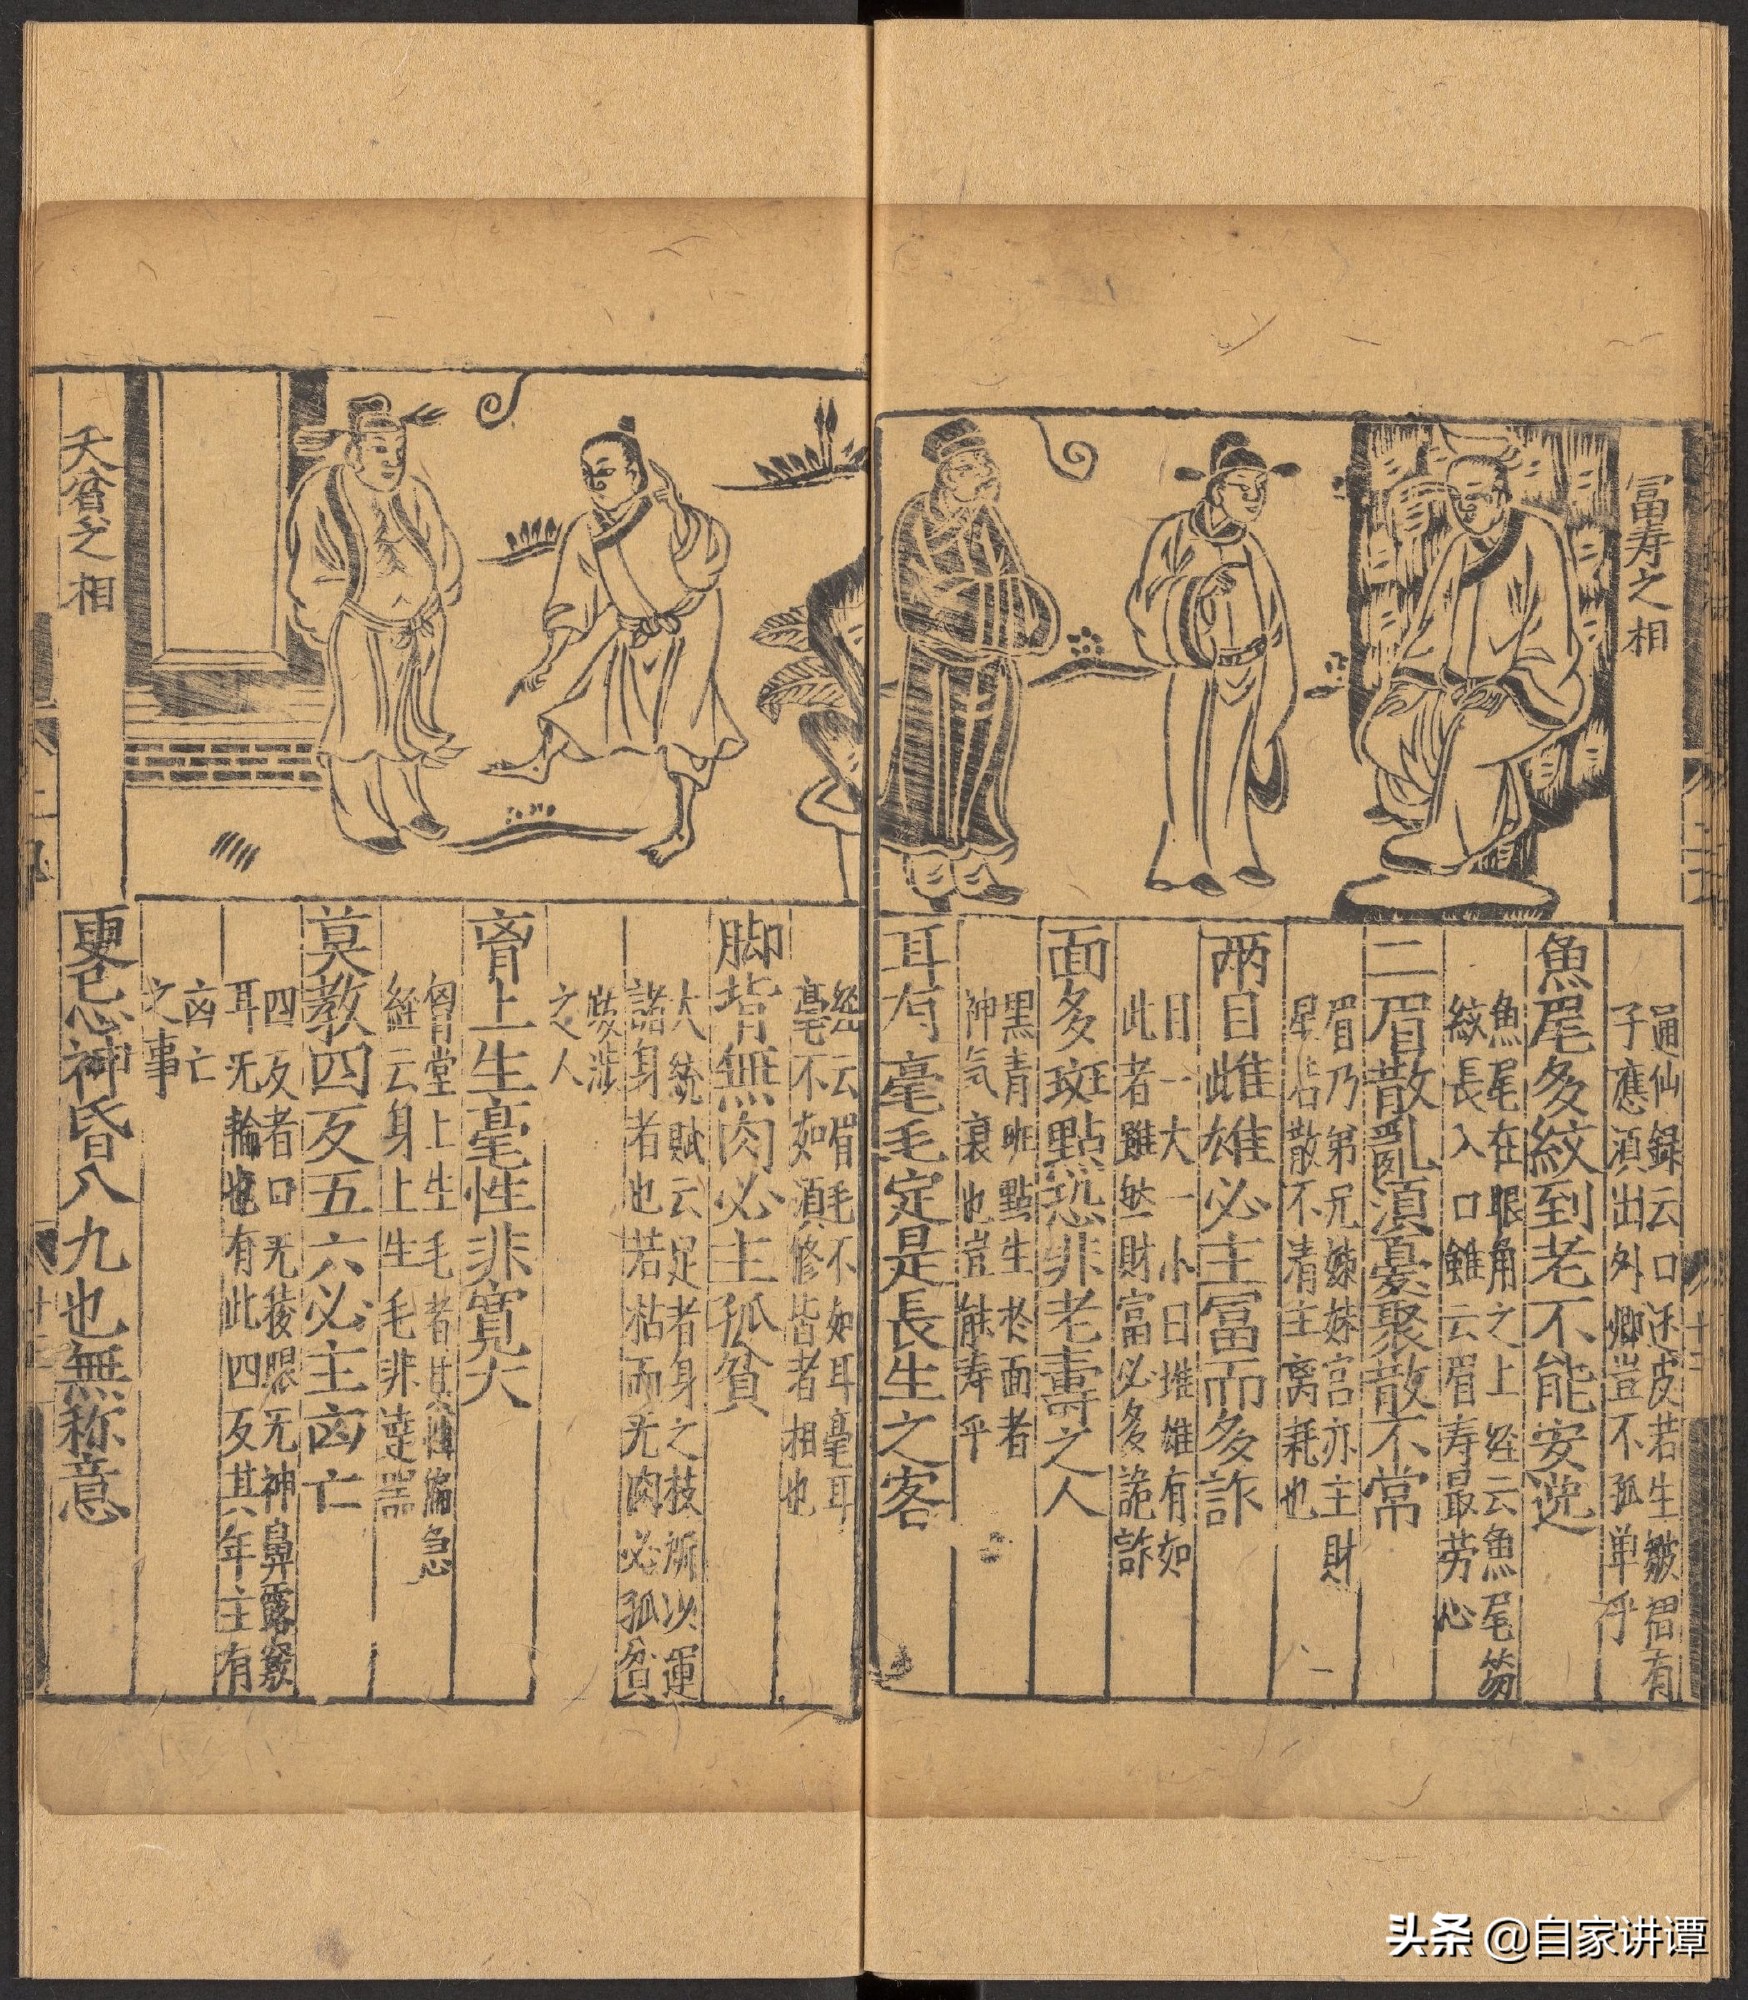 富寿之相
通仙録云口还皮若生皺褶有
子應湏出外鄉豈不孤单乎
魚尾多紋到老不能安逸
魚尾在眼角之上経云魚尾笏
紋長入口雖云眉寿最劳心
二眉散亂湏憂聚散不常
眉乃弟兄姊妹宫亦主財
星占散不清主离耗也
兩目雌雄必主冨而多詐
目一大一小曰雄雄有如
此者雖然財富必多詭詐
面多斑點恐非老壽之人
黒青斑點生於面者
神気衰也豈能寿乎
耳有毫毛定是長生之客
経云眉毛不如耳毫耳
毫不如湏修皆者相也
脚背無肉必主孤貧
大統賦云足者身之枝所以運
諸身者也若枯而无肉必孤貧
跋涉
之人
胷上生毫性非寬大
胷堂上生毛者其性偏急
経云身上生毛非逹器
莫教四反五六必主凶亡
四反者口无後眼无神鼻露竅
耳无輪也有此四反其年主有
凶亡
之事
更忌神昏八九也無称意
夭貧之相
头条 @自家讲谭